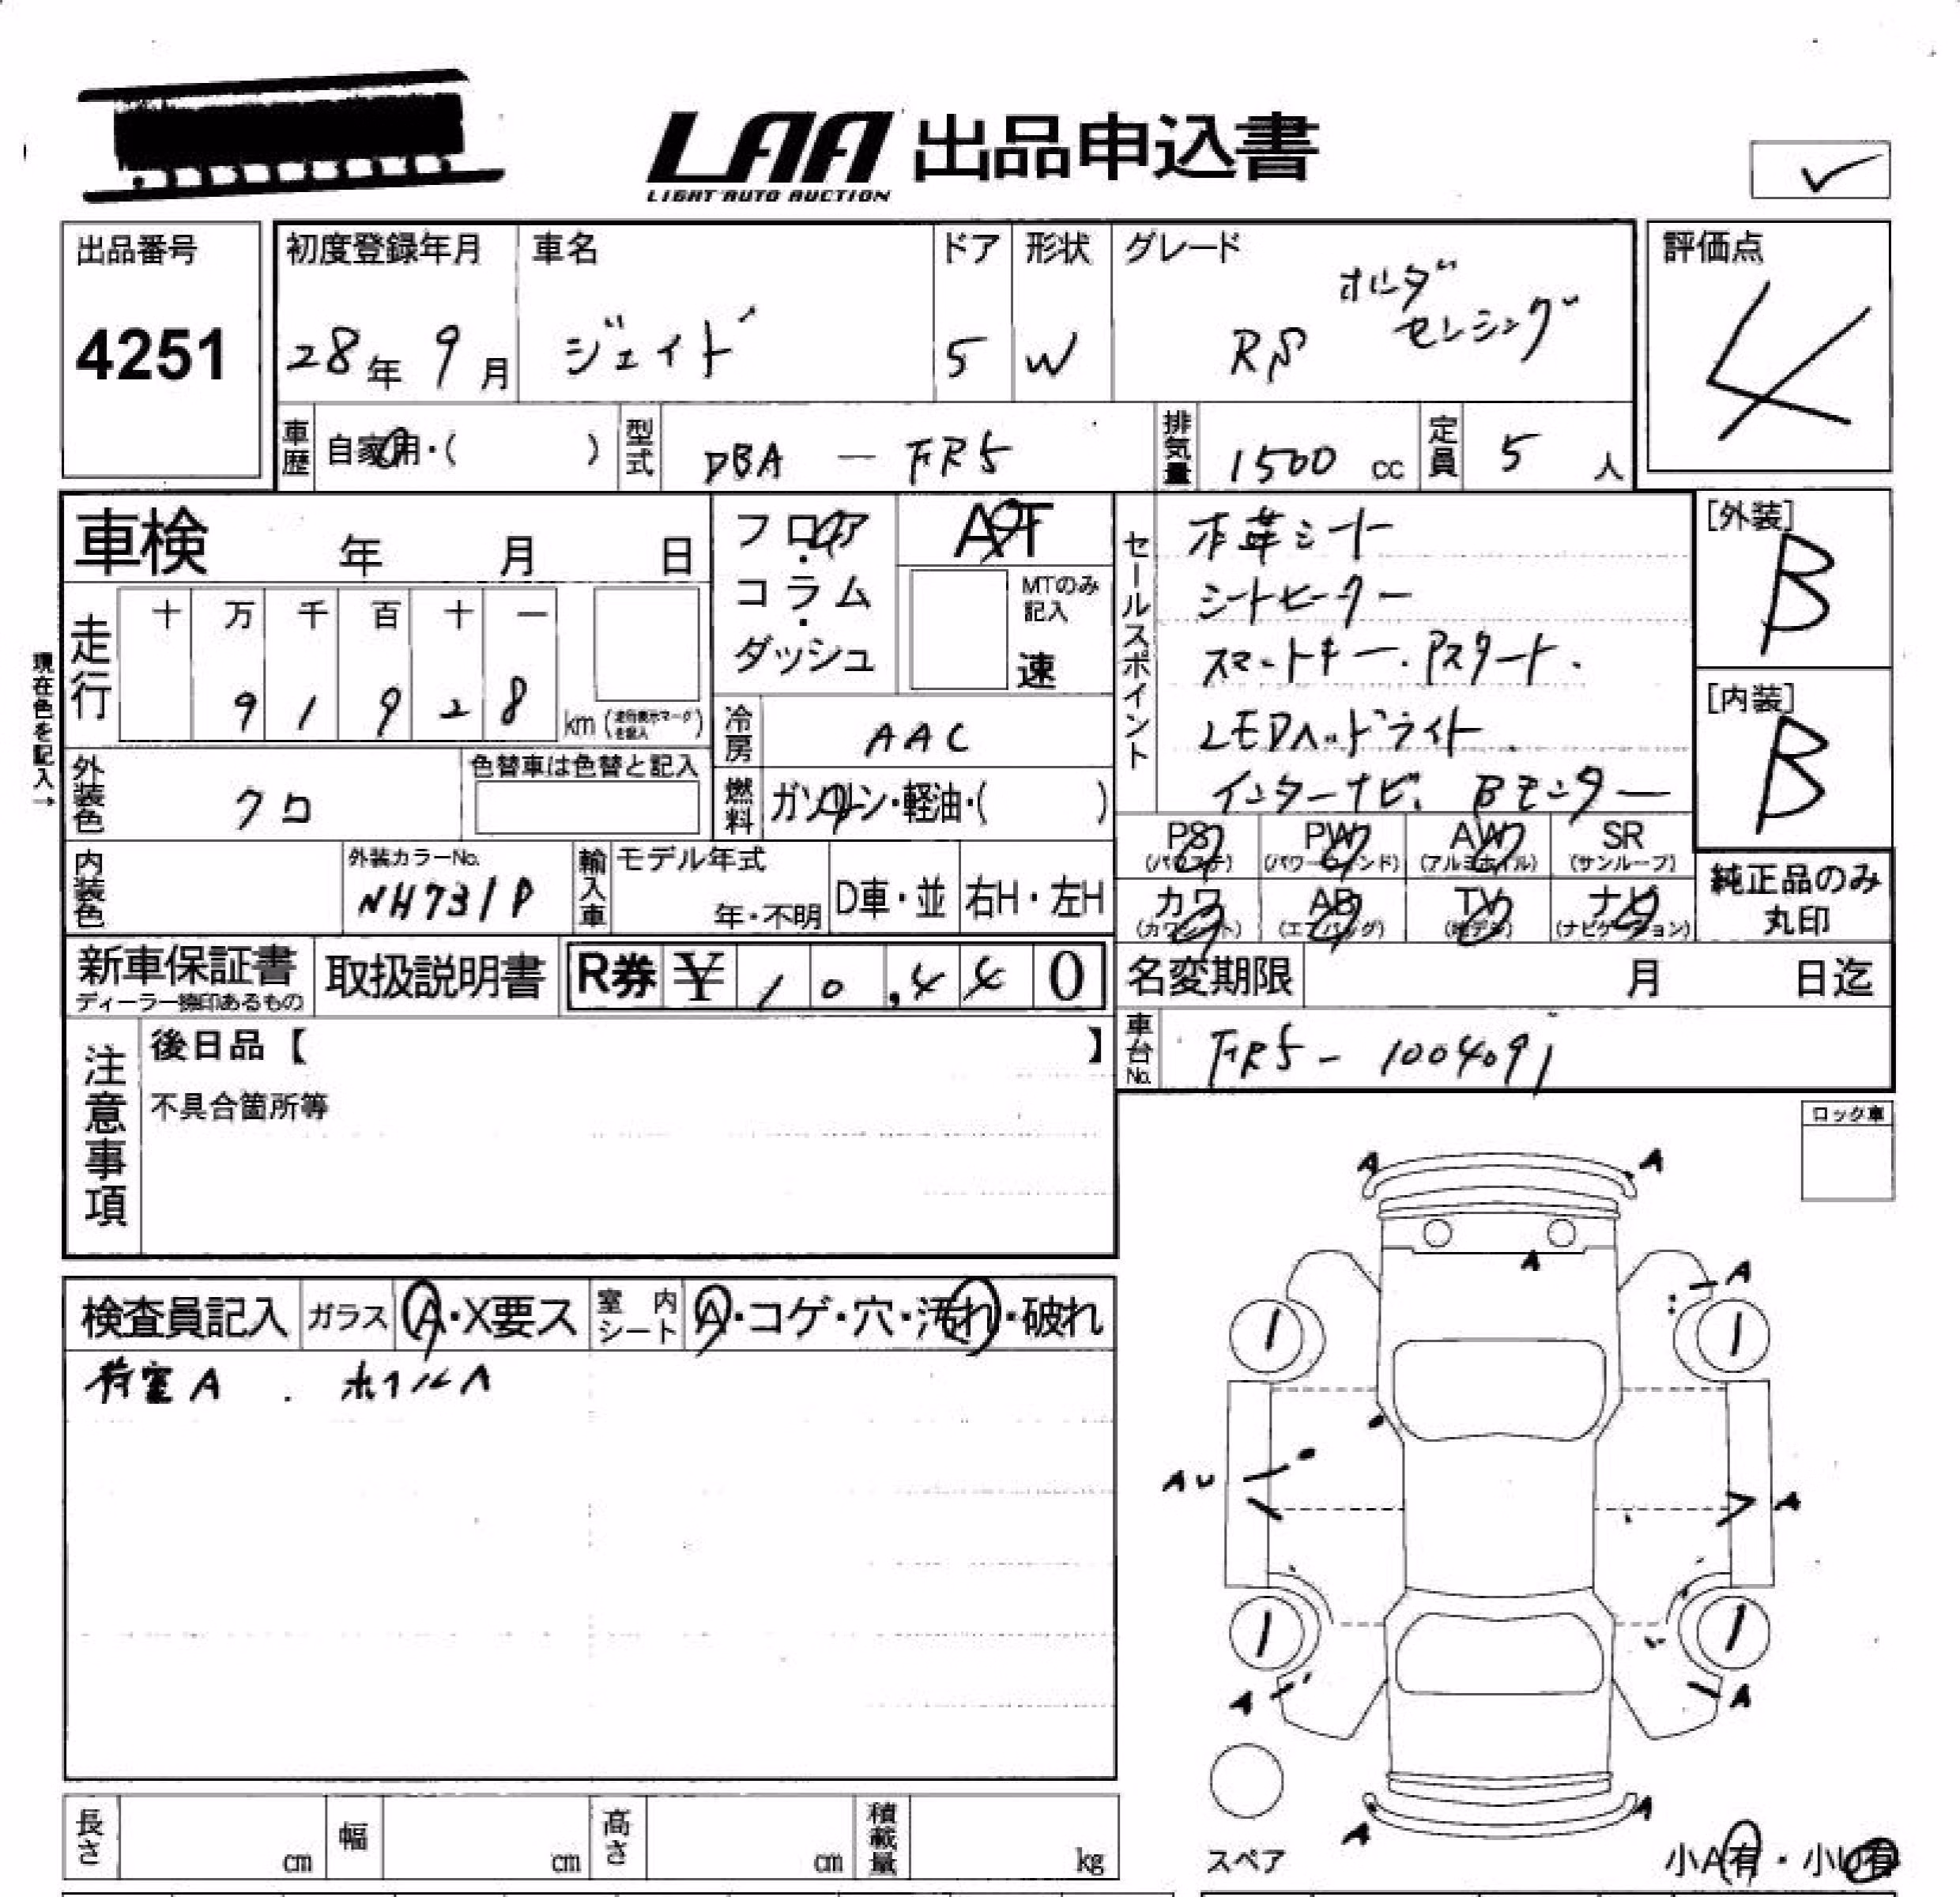 LAA 出品申込書
LIGHT AUTO AUCTION
出品番号
4251
初度登録年月
28年 9月
車名
ジェイド
ドア
5
形状
W
グレード
RS ホンダ
センシング
評価点
4
車歴
自家用・( )
型式
DBA - FR5
排気量
1500 cc
定員
5 人
車検 年 月 日
フロア
・
コラム
・
ダッシュ
AT
MTのみ
記入
速
セールスポイント
本革シート
シートヒーター
スマートキー.Pスタート.
LEDヘッドライト.
インターナビ. Bモニター
[外装]
B
[内装]
B
現在色を記入→
走行
十 万 千 百 十 一
9 1 9 2 8
km (走行表示マークを記入)
冷房
AAC
外装色
クロ
色替車は色替と記入
燃料
ガソリン・軽油・( )
PS
(パワステ)
PW
(パワーウィンド)
AW
(アルミホイル)
SR
(サンルーフ)
カワ
(カワシート)
AB
(エアバッグ)
TV
(地デジ)
ナビ
(ナビゲーション)
純正品のみ
丸印
内装色
外装カラーNo.
NH731P
輸入車
モデル年式
年・不明
D車・並
右H・左H
新車保証書
ディーラー捺印あるもの
取扱説明書
R券 ¥ 10,440
名変期限 月 日迄
車台No.
FR5-1004091
注意事項
後日品【 】
不具合箇所等
ロック車
検査員記入
ガラス
A・X要ス
室内シート
A・コゲ・穴・汚れ・破れ
荷室A . ホイルA
A A
A
A
1 1
AU A
1 1
A A
A A
スペア
小A有・小U有
長さ cm
幅 cm
高さ cm
積載量 kg